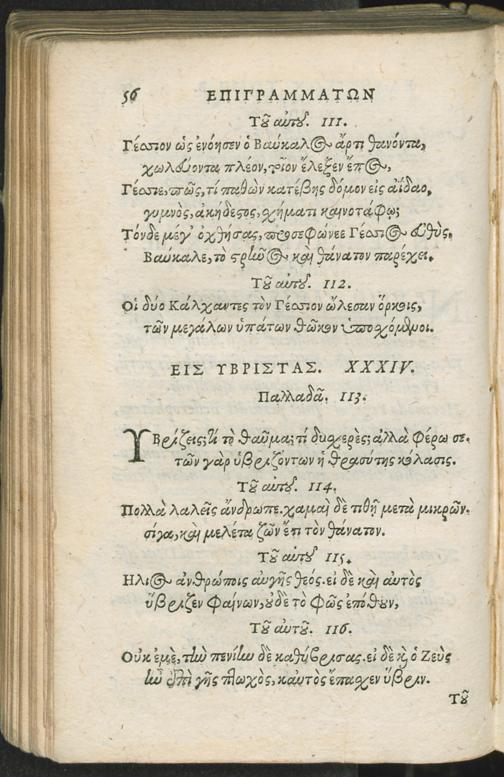 56 ΕΠΙΓΡΑΜΜΑΤΩΝ
Τοῦ αὐτοῦ. 111.
Γέσπον ὡς ἐνόησεν ὁ Βαύκαλος ἄρτι θανόντα,
χωλεύοντα πλέον, τοῖον ἔλεξεν ἔπος,
Γέσπε, πῶς, τί παθὼν κατέβης δόμον εἰς ἀίδαο,
γυμνὸς, ἀκήδεστος, σχήματι καινοτάφῳ;
Τόνδε μέγ' ὀχθήσας, προσεφώνεε Γέσπος εὐθὺς,
Βαύκαλε, τὸ στρῆνος καὶ θάνατον παρέχει.
Τοῦ αὐτοῦ. 112.
Οἱ δύο Κάλχαντες τὸν Γέσπον ὤλεσαν ὅρκοις,
τῶν μεγάλων ὑπάτων θῶκον ὑποσχόμενοι.
ΕΙΣ ΥΒΡΙΣΤΑΣ. XXXIV.
Παλλαδᾶ. 113.
ΥΒρίζεις; καὶ τὸ θαῦμα; τί δυσχερές; ἀλλὰ φέρω σε.
τῶν γὰρ ὑβριζόντων ἡ θρασύτης κόλασις.
Τοῦ αὐτοῦ. 114.
Πολλὰ λαλεῖς ἄνθρωπε. χαμαὶ δὲ τιθῇ μετὰ μικρῶν.
σίγα, καὶ μελέτα ζῶν ἔτι τὸν θάνατον.
Τοῦ αὐτοῦ 115.
Ηλιος ἀνθρώποις αὐγῆς θεός. εἰ δὲ καὶ αὐτὸς
ὕβριζεν φαίνων, οὐδὲ τὸ φῶς ἐπόθουν,
Τοῦ αὐτοῦ. 116.
Οὐκ ἐμὲ, τὴν πενίην δὲ καθύβρισας. εἰ δὲ καὶ ὁ Ζεὺς
ἦν ἐπὶ γῆς πτωχὸς, καυτὸς ἔπασχεν ὕβριν.
Τοῦ